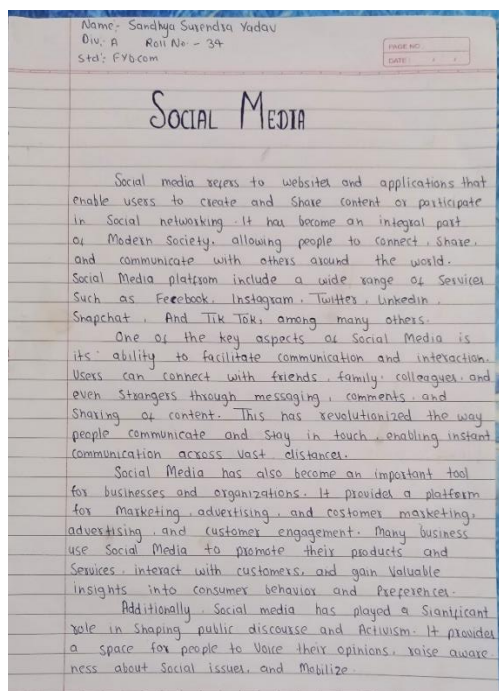 Name:- Sandhya Surendra Yadav
Div:- A Roll No - 34
Std': FYbcom
PAGE NO.:
DATE: / /
SOCIAL MEDIA
Social media refers to websites and applications that
enable users to create and share content or participate
in Social networking. It has become an integral part
of Modern Society, allowing people to connect, share,
and communicate with others around the world.
Social Media platfrom include a wide range of services
Such as Feeebook, Instagram, Twitter, linkedin,
Snapchat, And TIK TOK, among many others.
One of the key aspects of Social Media is
its ability to facilitate communication and interaction.
Users can connect with friends, family, colleagues, and
even strangers through messaging, comments, and
Sharing of content. This has revolutionized the way
people communicate and stay in touch, enabling instant
communication across vast distances.
Social Media has also become an important tool
for businesses and organizations. It provides a platform
for Marketing, advertising, and costomer marketing,
advertising, and customer engagement. Many business
use Social Media to promote their products and
Services, interact with customers, and gain Valuable
insights into consumer behavior and Preferences.
Additionally, Social media has played a Sianificant
role in Shaping public discourse and Activism. It provides
a space for people to Voice their opinions, raise aware-
ness about Social issues, and Mobilize.